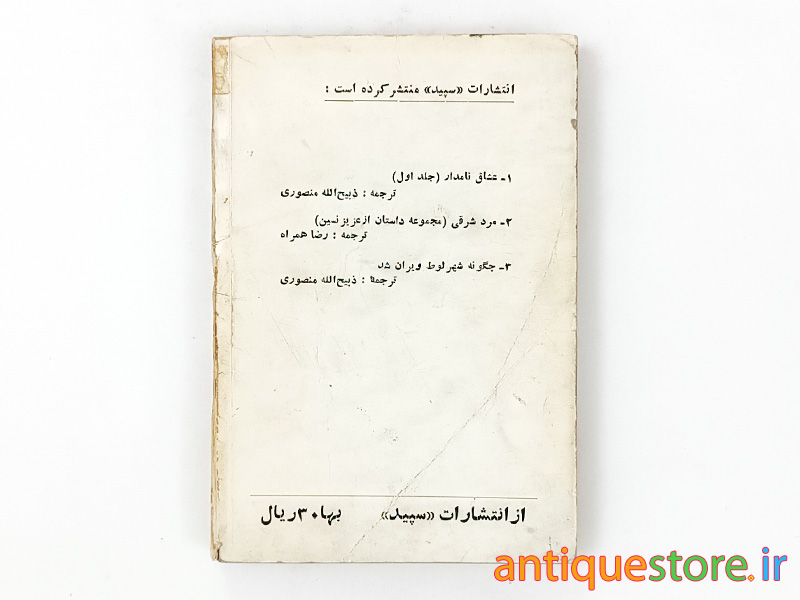 انتشارات «سپید» منتشر کرده است :
۱- عشاق نامدار (جلد اول)
ترجمه : ذبیح‌الله منصوری
۲- مرد شرقی (مجموعه داستان از عزیز نسین)
ترجمه : رضا همراه
۳- چگونه شهر لوط ویران شد
ترجمهٔ : ذبیح‌الله منصوری
از انتشارات «سپید» بها ۳۰ ریال
antiquestore.ir